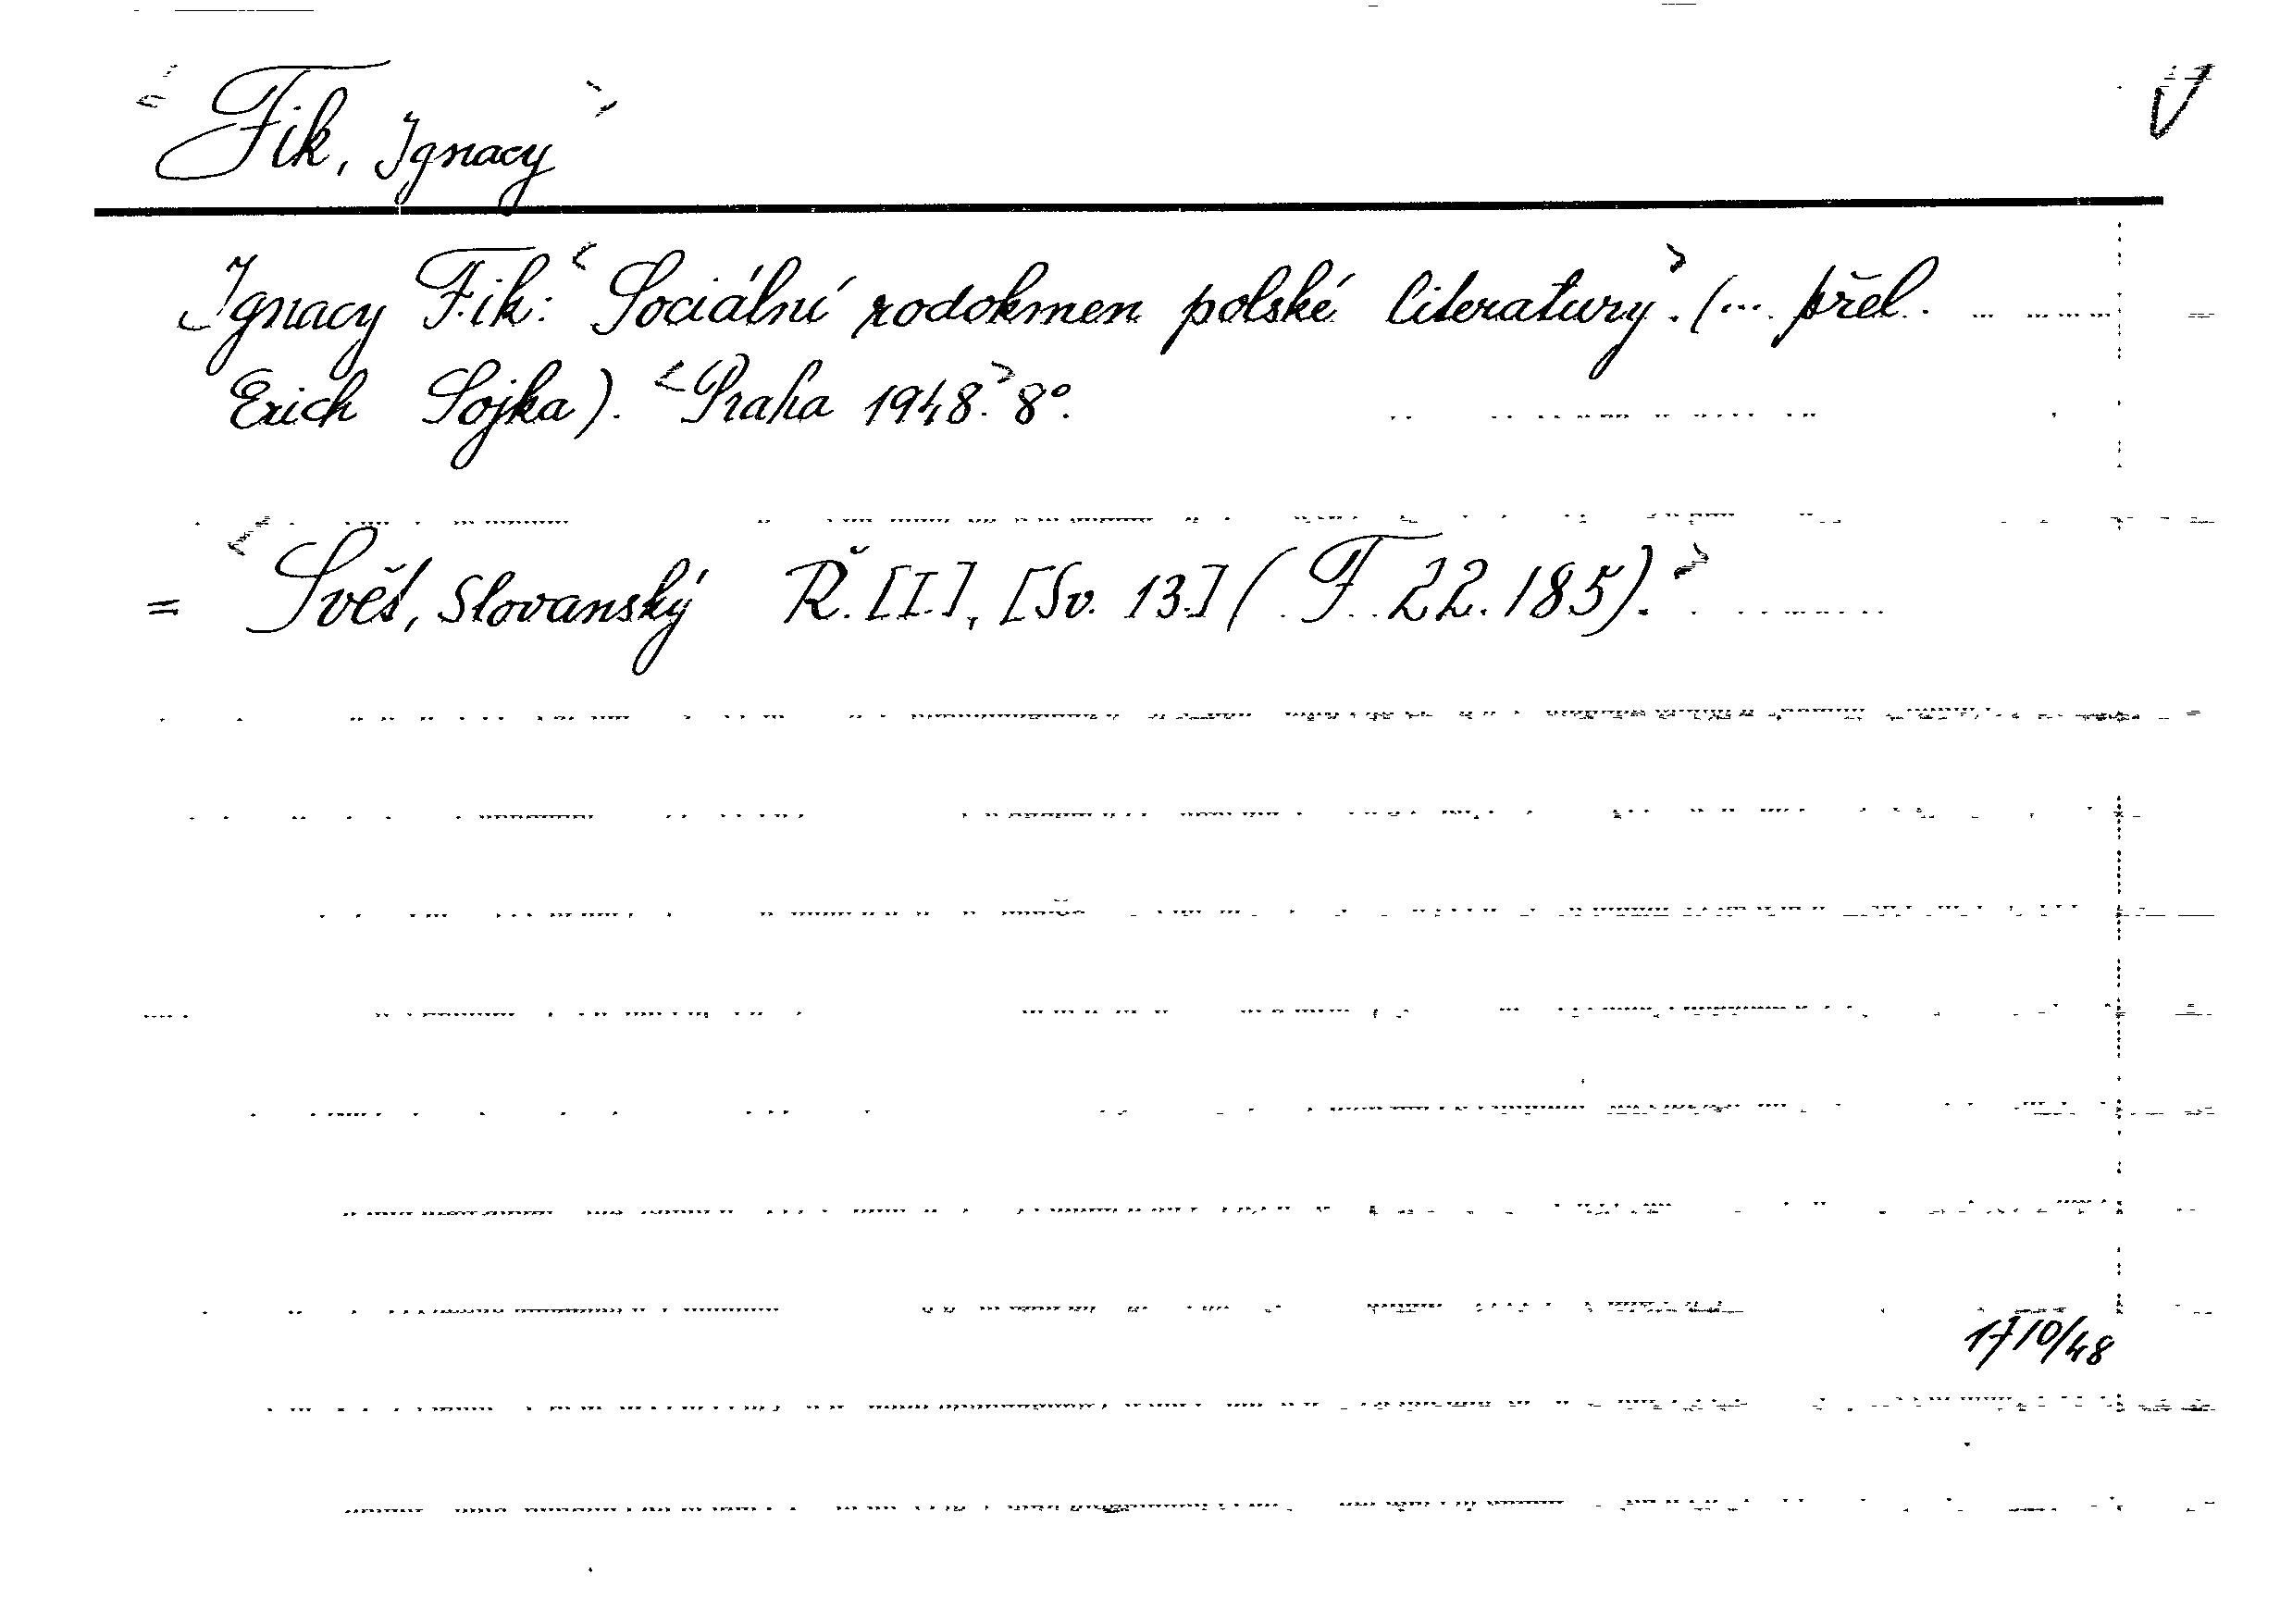 <Fik, Ignacy> V
Ignacy Fik: <Sociální rodokmen polské literatury>. (... přel.
Erich Sojka). <Praha 1948.> 8°.
= <Svět, Slovanský Ř. [I.], [Sv. 13.] (F 22.185).>
17/10/48